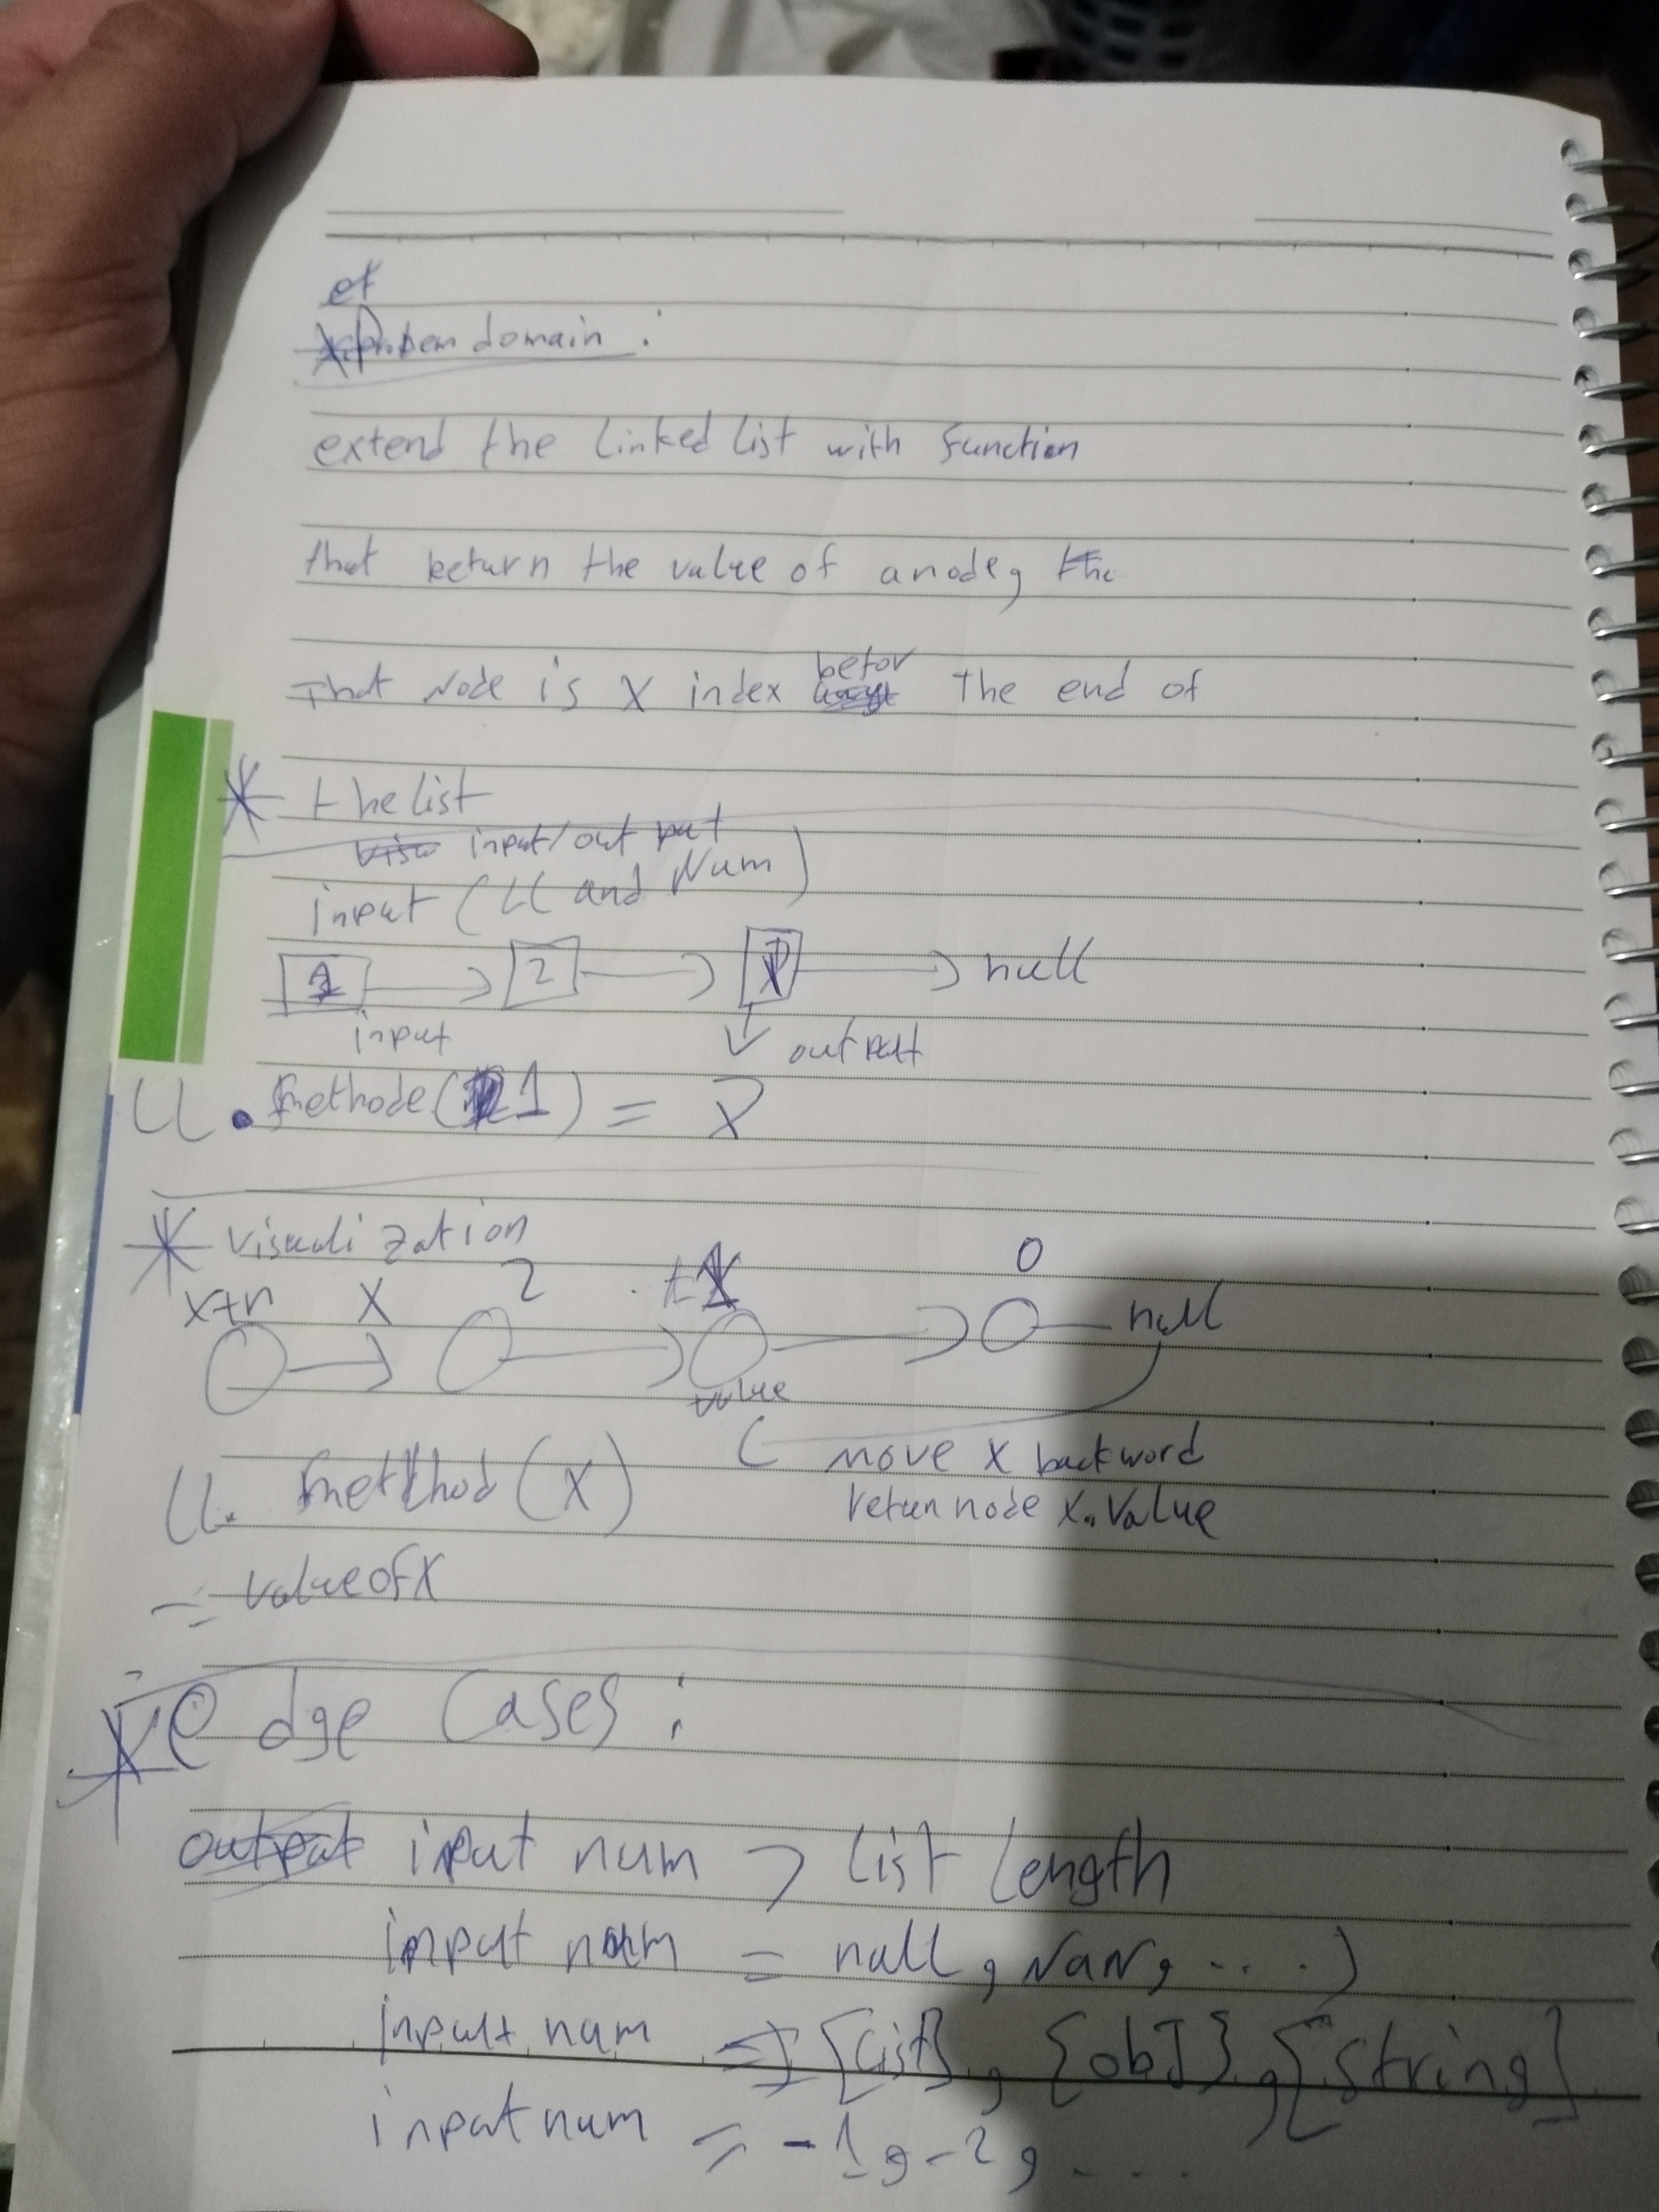 domain :
extend the linked list with function
that return the value of anode, the
That Node is X index befor The end of
* the list
input/out put
input (LL and Num)
1 2 null
input output
LL. methode( 1) = 2
* visualization
x+n X 2 1 0
null
value
LL. method (X) move x backword
return node x.value
= value of X
* edge Cases :
output input num > list Length
input num = null, NaN, ....)
input num = [list], {obj}, [string]
input num = -1, -2, ....